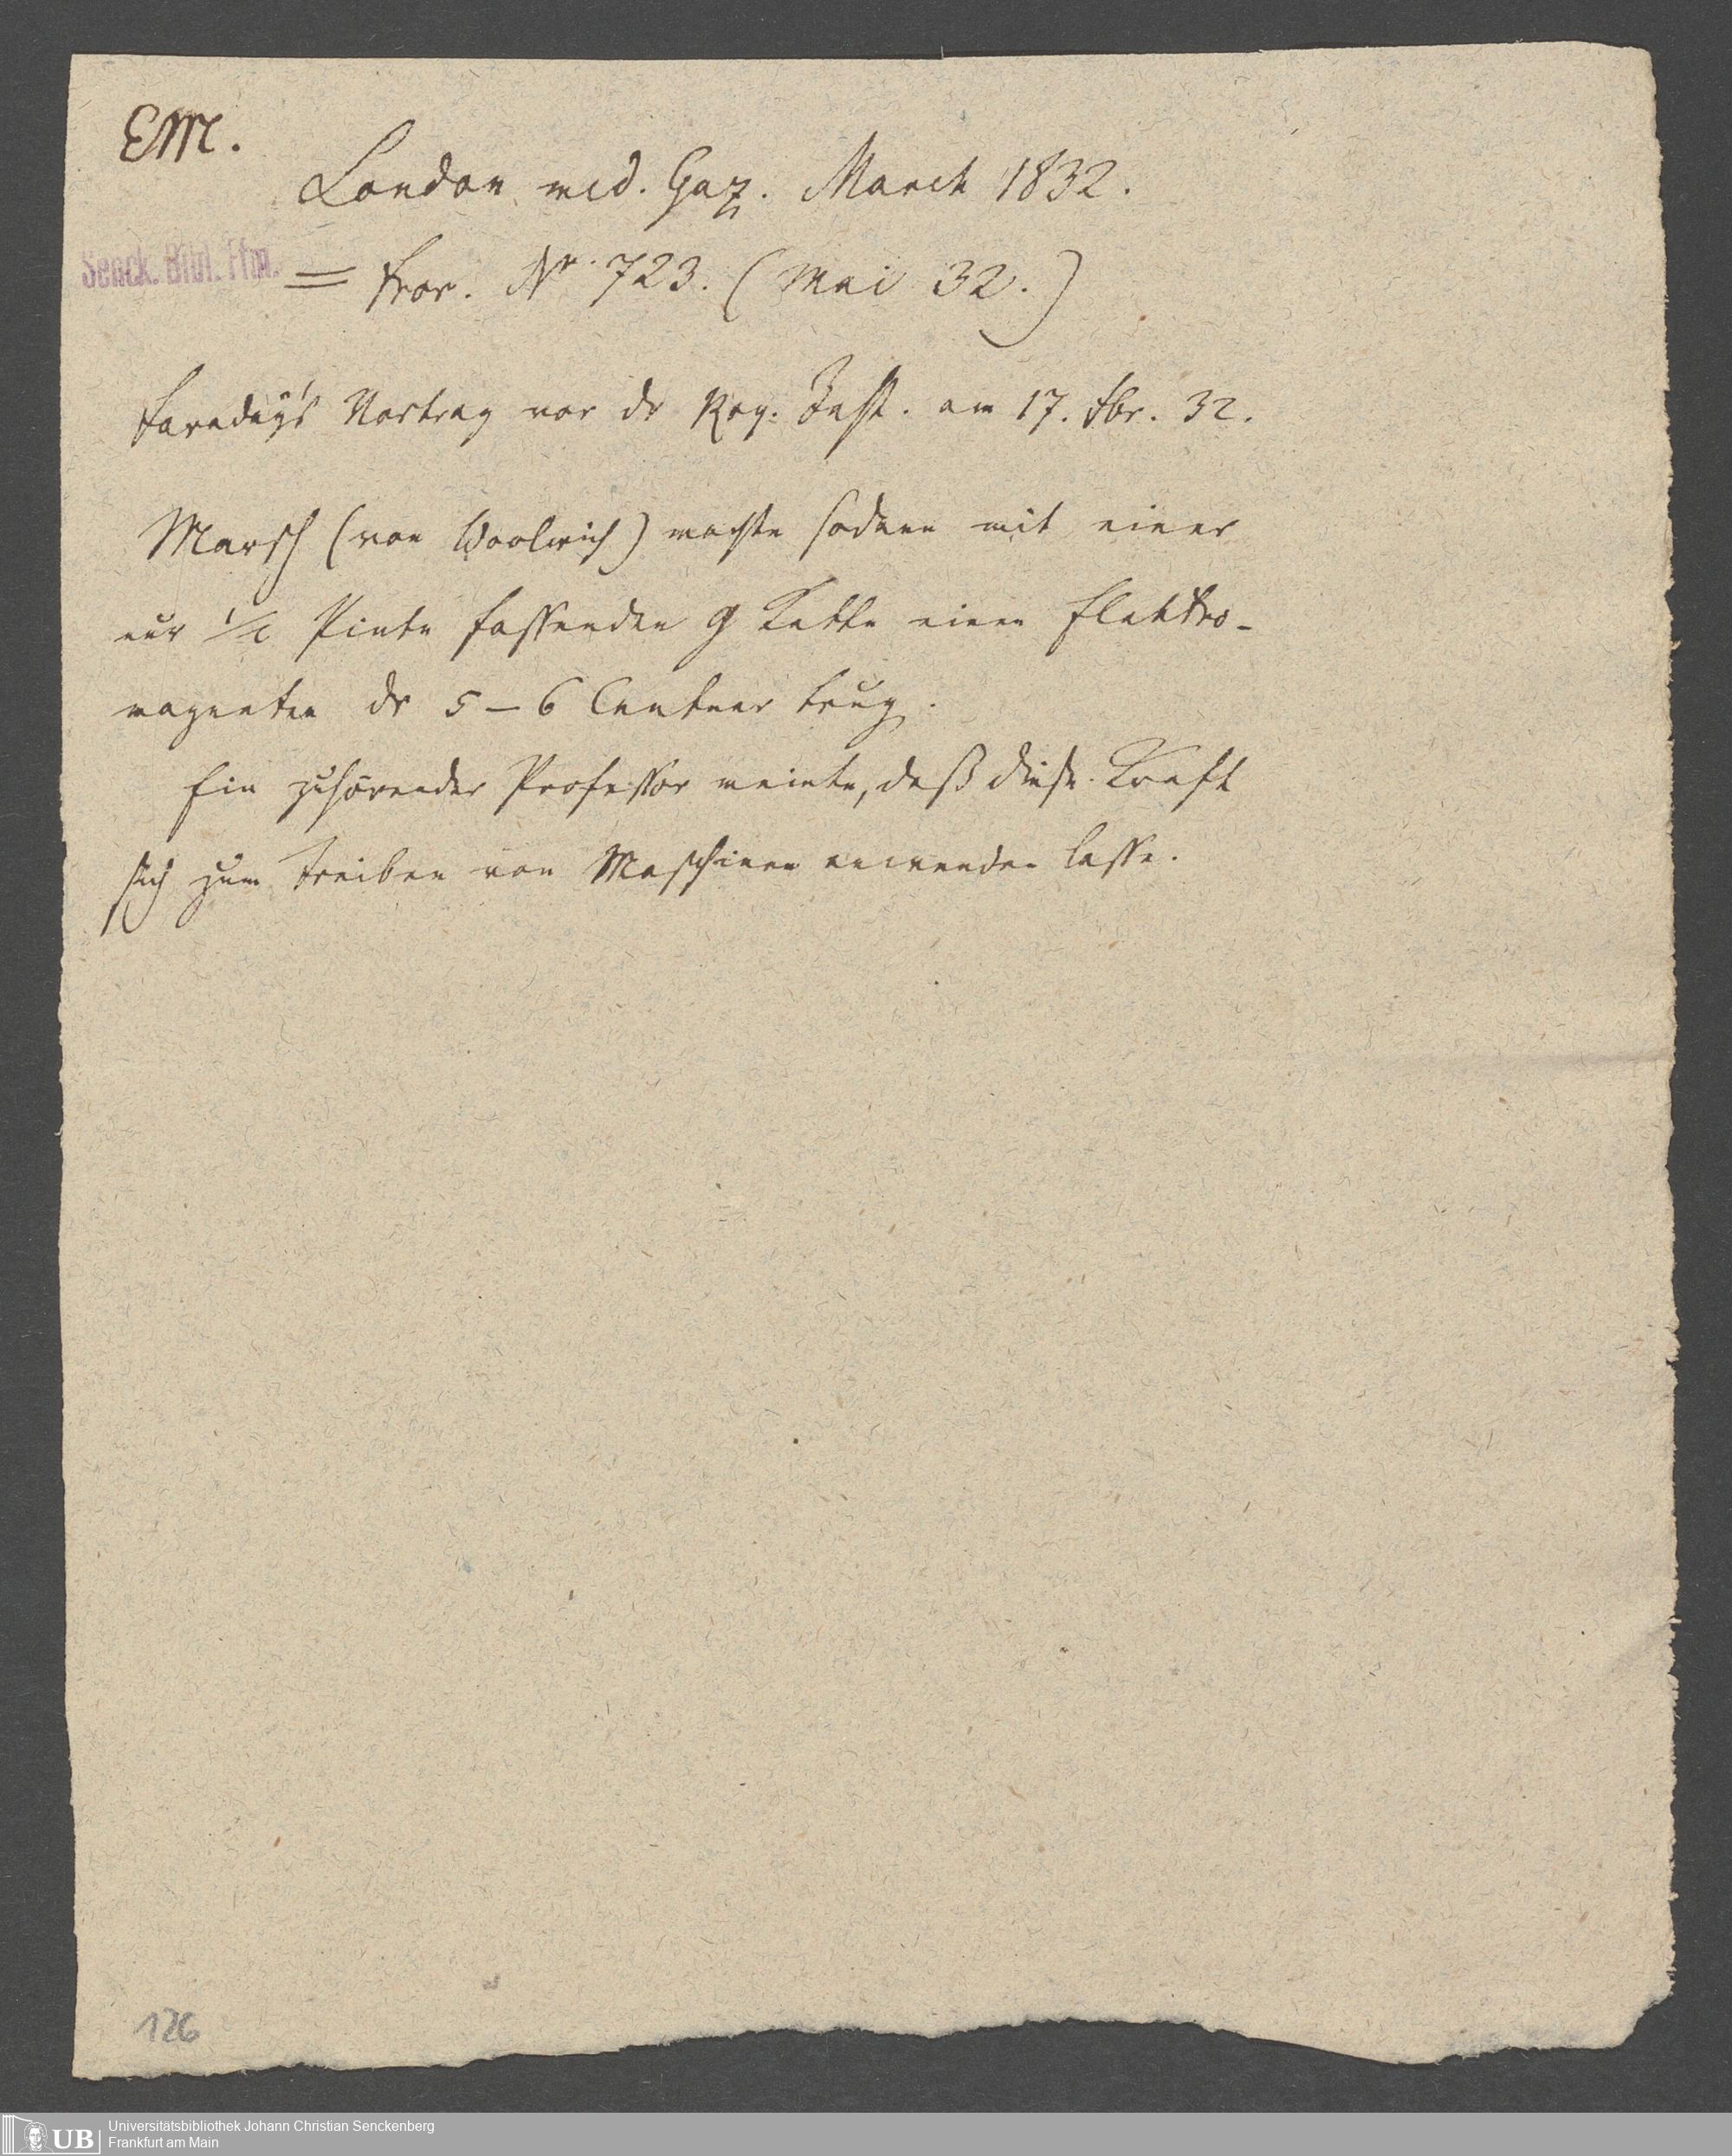 EM.
London med. Gaz. March 1832.
Senck. Bibl. Ffm.
= Fror. Nr. 723. (Mai 32.)
Faraday's Vortrag vor dr Roy. Inst. am 17. Fbr. 32.
Marsh (von Woolwich) machte sodann mit einer
nur 1/2 Pinte fassenden g Kette einen Elektro-
magneten dr 5–6 Centner trug.
Ein zuhörender Professor meinte, daß diese Kraft
sich zum Treiben von Maschinen anwenden lasse.
126
UB Universitätsbibliothek Johann Christian Senckenberg
Frankfurt am Main